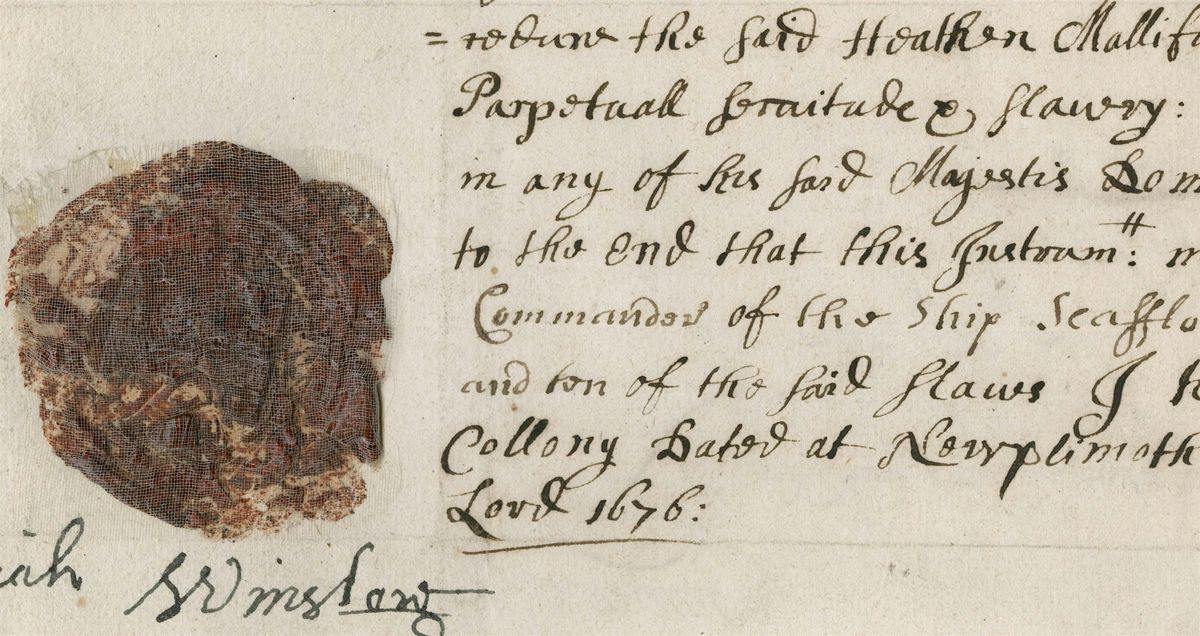 = redure the said Heathen Mallifa
Parpetuall servitude & slavery:
in any of his said Majestis Dom
to the End that this Instrum:tt m
Commander of the Ship Seafflo
and ten of the said slaves I h
Collony Dated at Newplimoth
Lord 1676:
iah Winslow